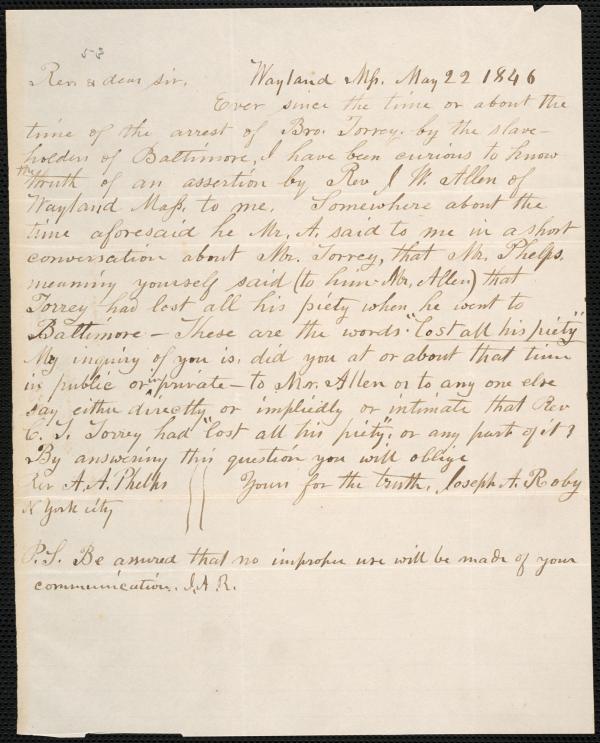 53
Rev & dear sir, Wayland Ms. May 22 1846
Ever since the time or about the
time of the arrest of Bro. Torrey by the slave-
holders of Baltimore, I have been curious to know
the truth of an assertion by Rev J W. Allen of
Wayland Mass. to me. Somewhere about the
time aforesaid he Mr. A. said to me in a short
conversation about Mr. Torrey, that Mr. Phelps.
meaning yourself said (to him Mr. Allen) that
Torrey had lost all his piety when he went to
Baltimore – These are the words "lost all his piety"
My inquiry of you is, did you at or about that time
in public or in private – to Mr. Allen or to any one else
say either directly or impliedly or intimate that Rev
C. T. Torrey had "lost all his piety", or any part of it?
By answering this question you will oblige
Rev A. A. Phelps Yours for the truth, Joseph A. Roby
N York city
P.S. Be assured that no improper use will be made of your
communication. J.A.R.